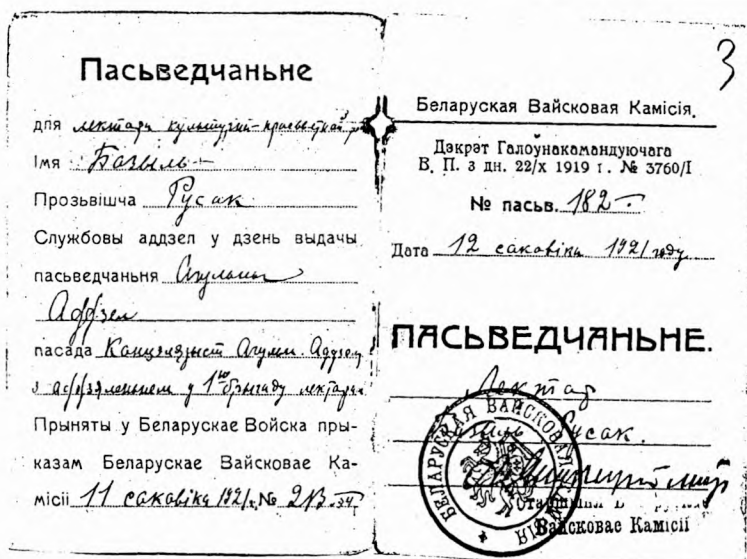 Пасьведчаньне
для лектара культурна-прасьветнай
Імя Базыль
Прозьвішча Русак
Службовы аддзел у дзень выдачы
пасьведчаньня Агульны
Аддзел
пасада Канцелярыст Агульн. Аддзелу
у 1ую брыгаду лектарам
Прыняты у Беларускае Войска пры-
казам Беларускае Вайсковае Ка-
місіі 11 сакавіка 1921 г. №
3
Беларуская Вайсковая Камісія.
Дэкрэт Галоўнакамандуючага
В. П. з дн. 22/х 1919 г. № 3760/I
№ пасьв. 182
Дата 12 сакавіка 1921 году
ПАСЬВЕДЧАНЬНЕ.
Лектар
Русак.
БЕЛАРУСКАЯ ВАЙСКОВАЯ КАМІСІЯ
Вайсковае Камісіі